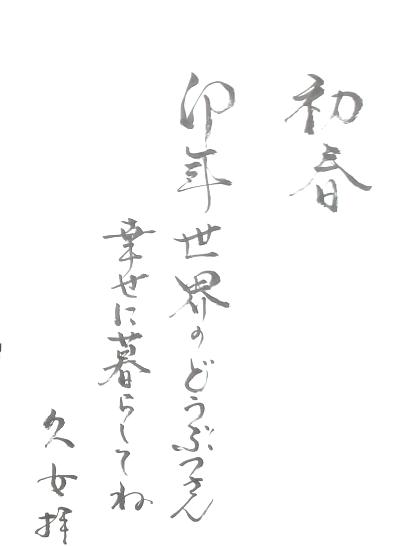 初春
卯年 世界のどうぶつさん
幸せに暮らしてね
久女拝